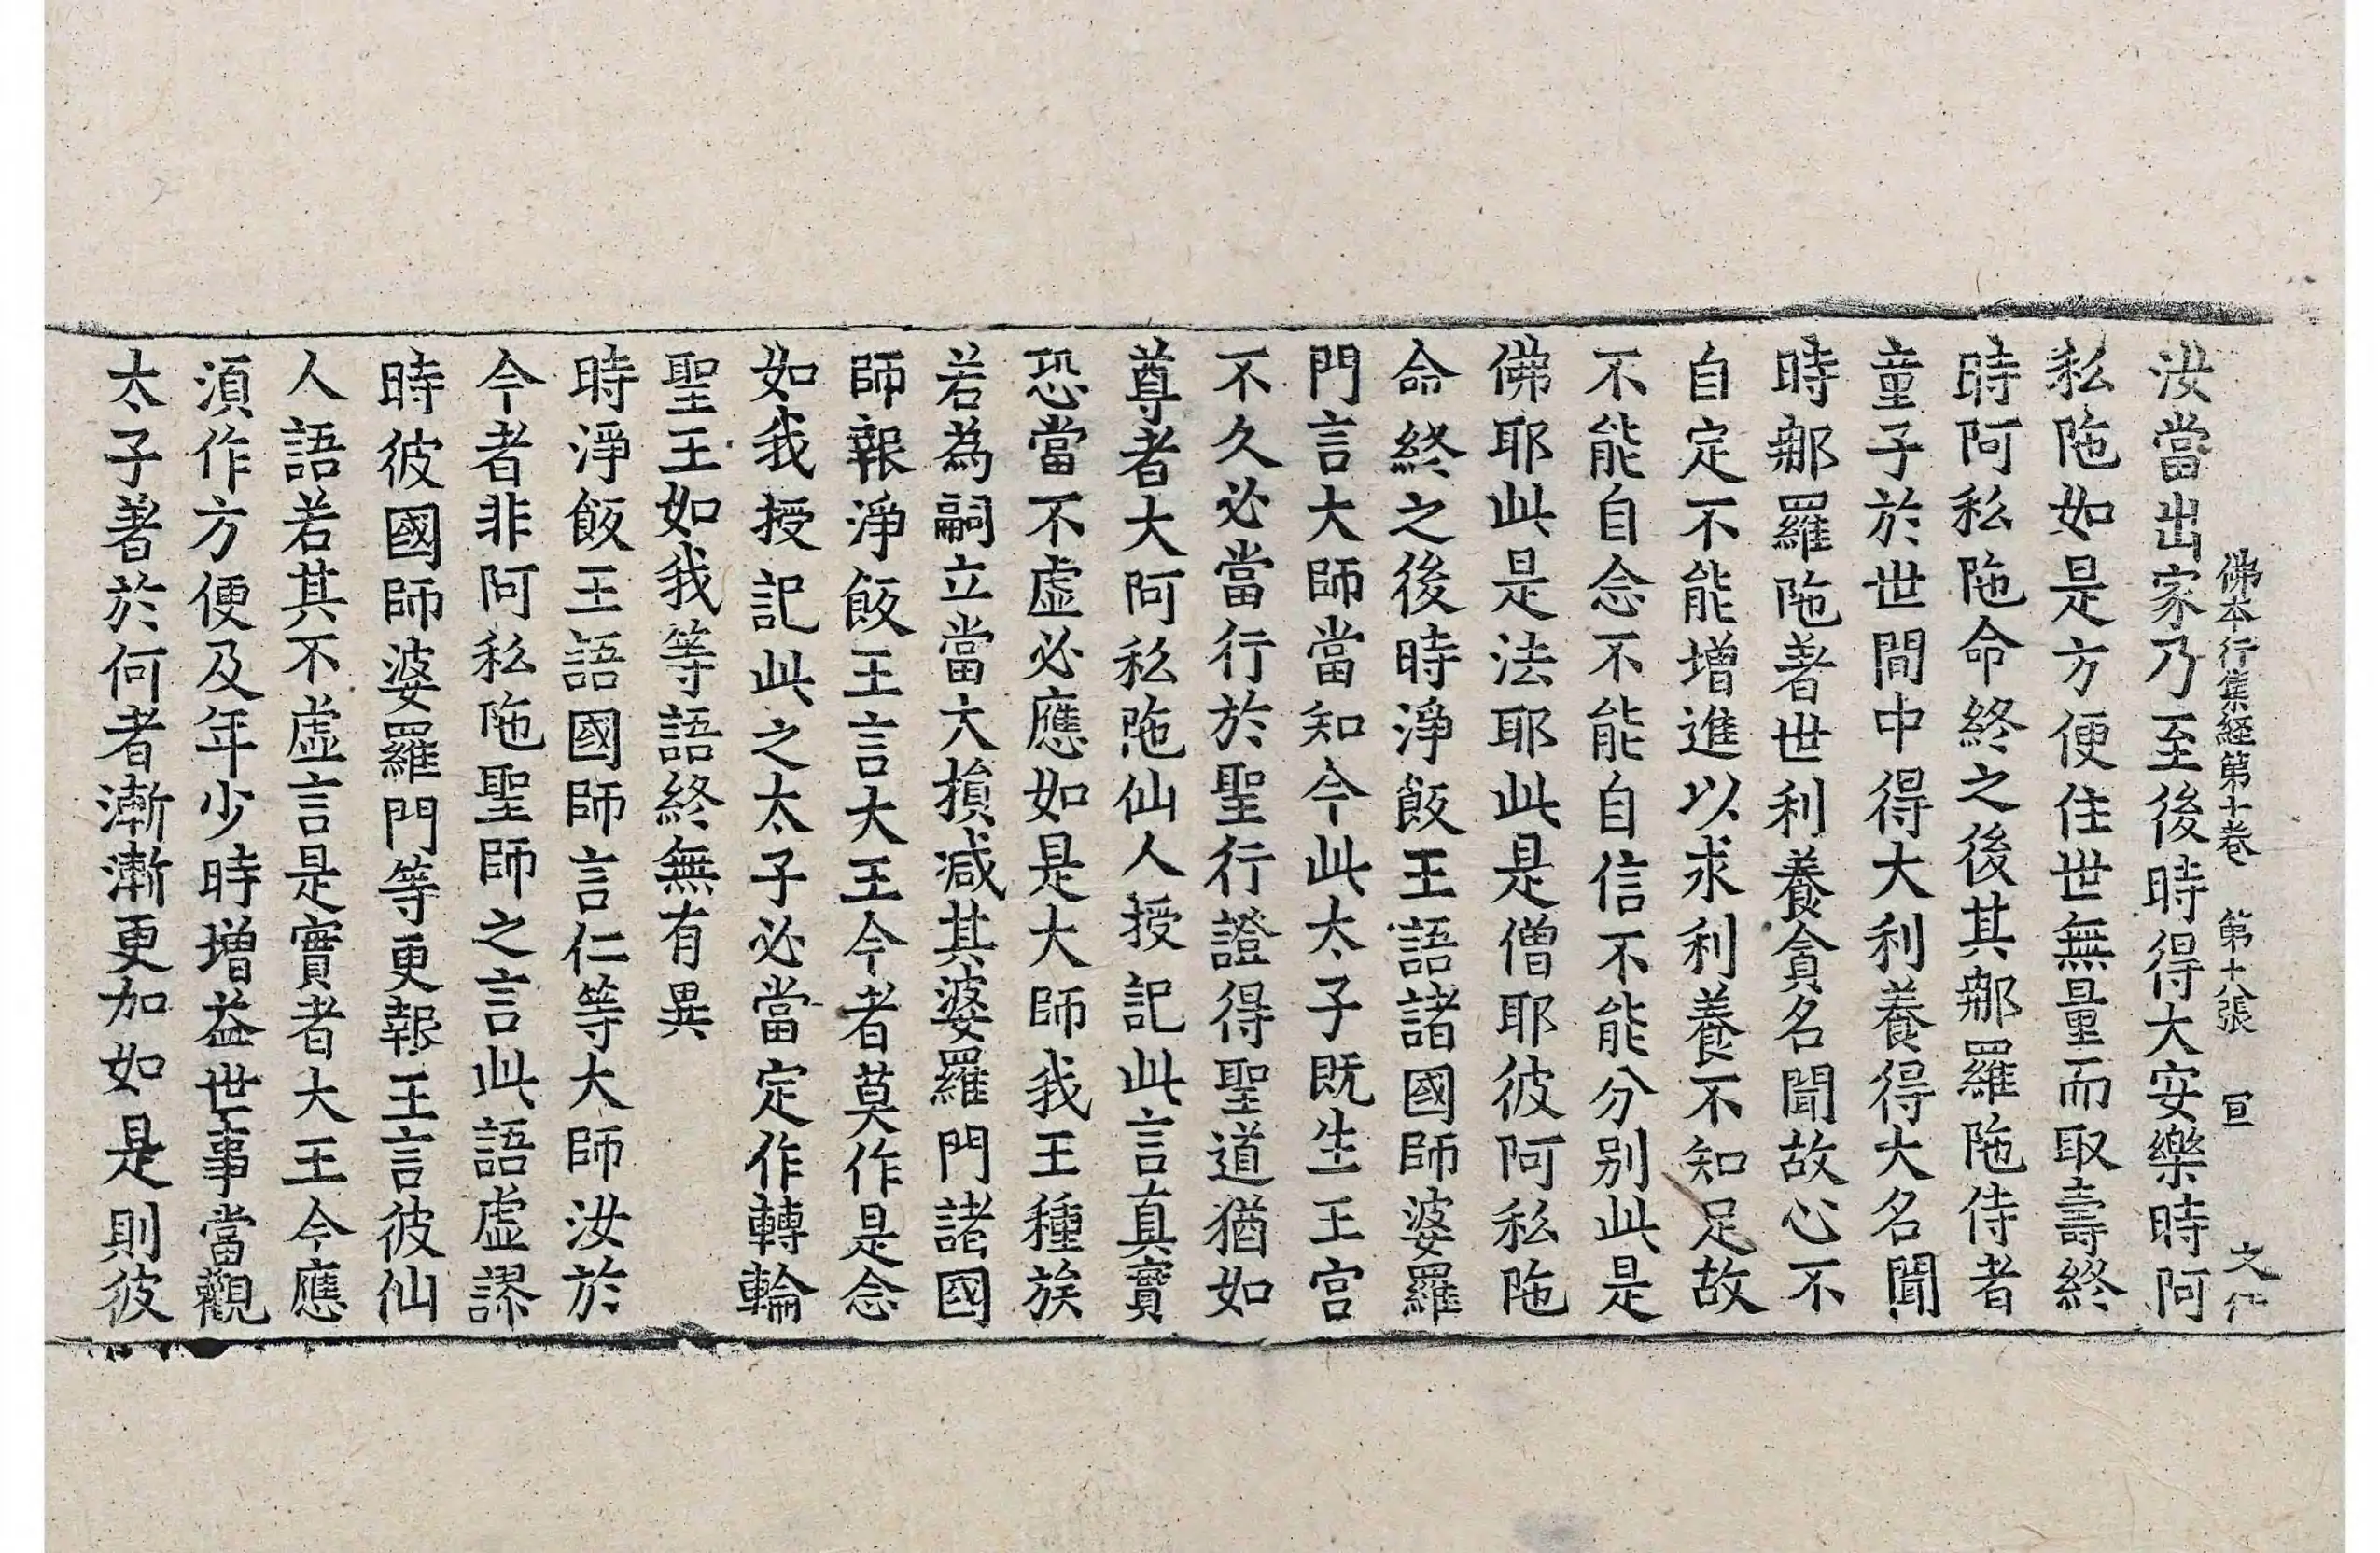 佛本行集経第十卷 第十八張 宣 文仁
汝當出家乃至後時得大安樂時阿
私陁如是方便住世無量而取壽終
時阿私陁命終之後其那羅陁侍者
童子於世間中得大利養得大名聞
時那羅陁著世利養貪名聞故心不
自定不能增進以求利養不知足故
不能自念不能自信不能分別此是
佛耶此是法耶此是僧耶彼阿私陁
命終之後時淨飯王語諸國師婆羅
門言大師當知今此太子既生王宮
不久必當行於聖行證得聖道猶如
尊者大阿私陁仙人授記此言真實
恐當不虛必應如是大師我王種族
若為嗣立當大損減其婆羅門諸國
師報淨飯王言大王今者莫作是念
如我授記此之太子必當定作轉輪
聖王如我等語終無有異
時淨飯王語國師言仁等大師汝於
今者非阿私陁聖師之言此語虛謬
時彼國師婆羅門等更報王言彼仙
人語若其不虛言是實者大王今應
須作方便及年少時增益世事當觀
太子著於何者漸漸更加如是則彼